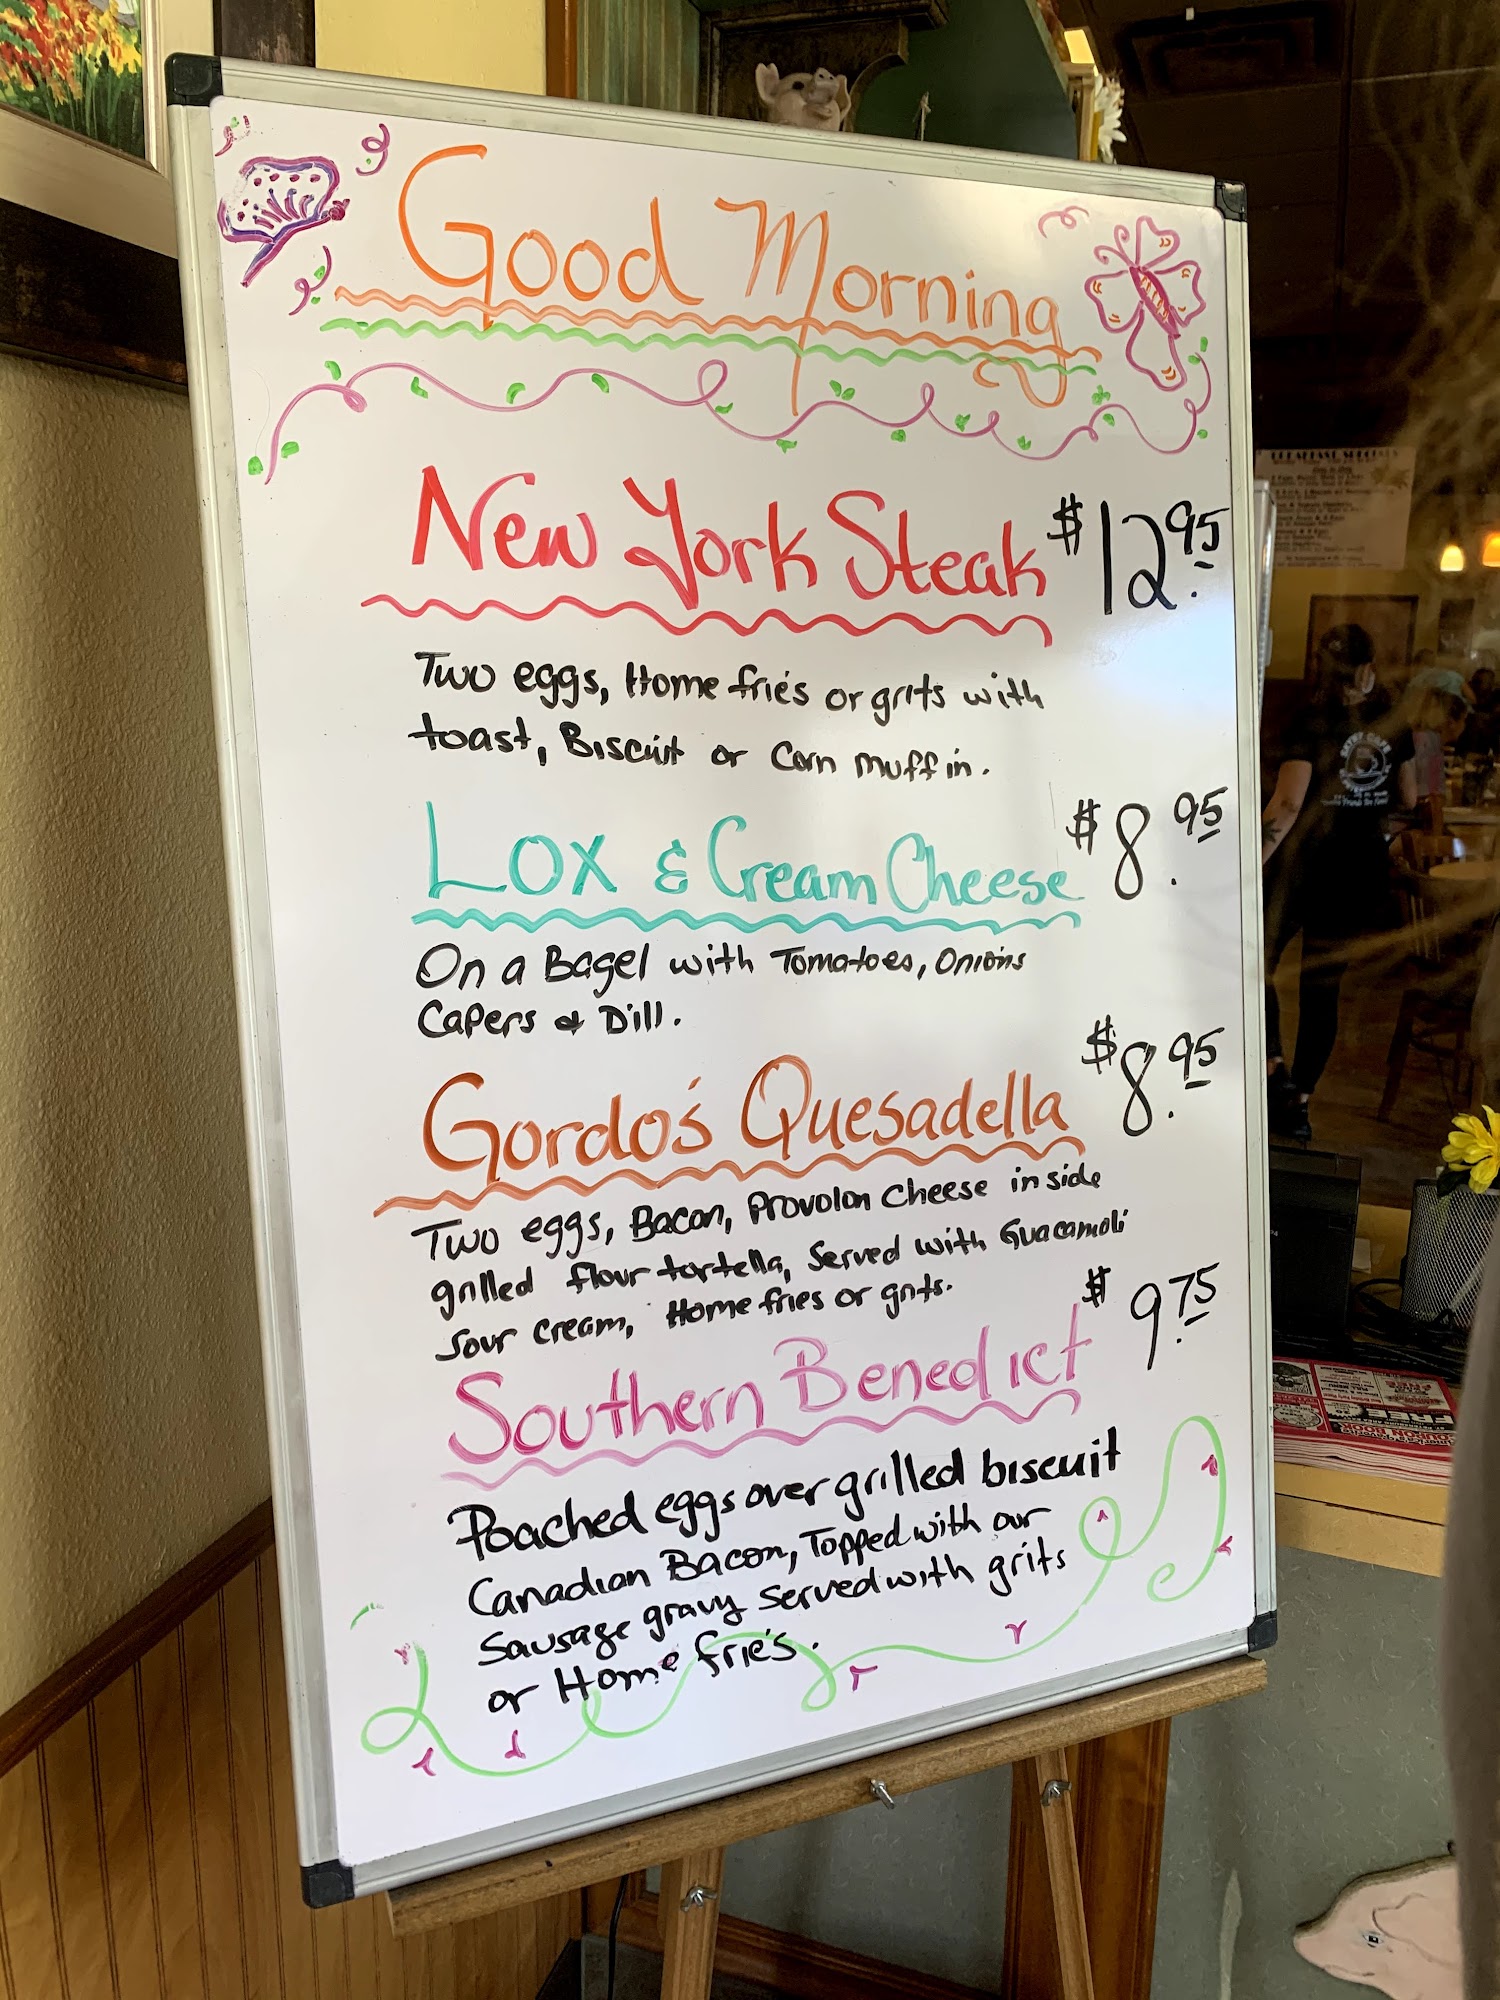 Good Morning
New York Steak $12.95
Two eggs, Home fries or grits with
toast, Biscuit or Corn muffin.
Lox & Cream Cheese $8.95
On a Bagel with Tomatoes, Onions
Capers & Dill.
Gordo's Quesadella $8.95
Two eggs, Bacon, Provolon Cheese inside
grilled flour tortella, Served with Guacamoli
Sour Cream, Home fries or grits.
Southern Benedict $9.75
Poached eggs over grilled biscuit
Canadian Bacon, Topped with our
Sausage gravy served with grits
or Home fries.
BREAKFAST SPECIALS
COUPON BOOK